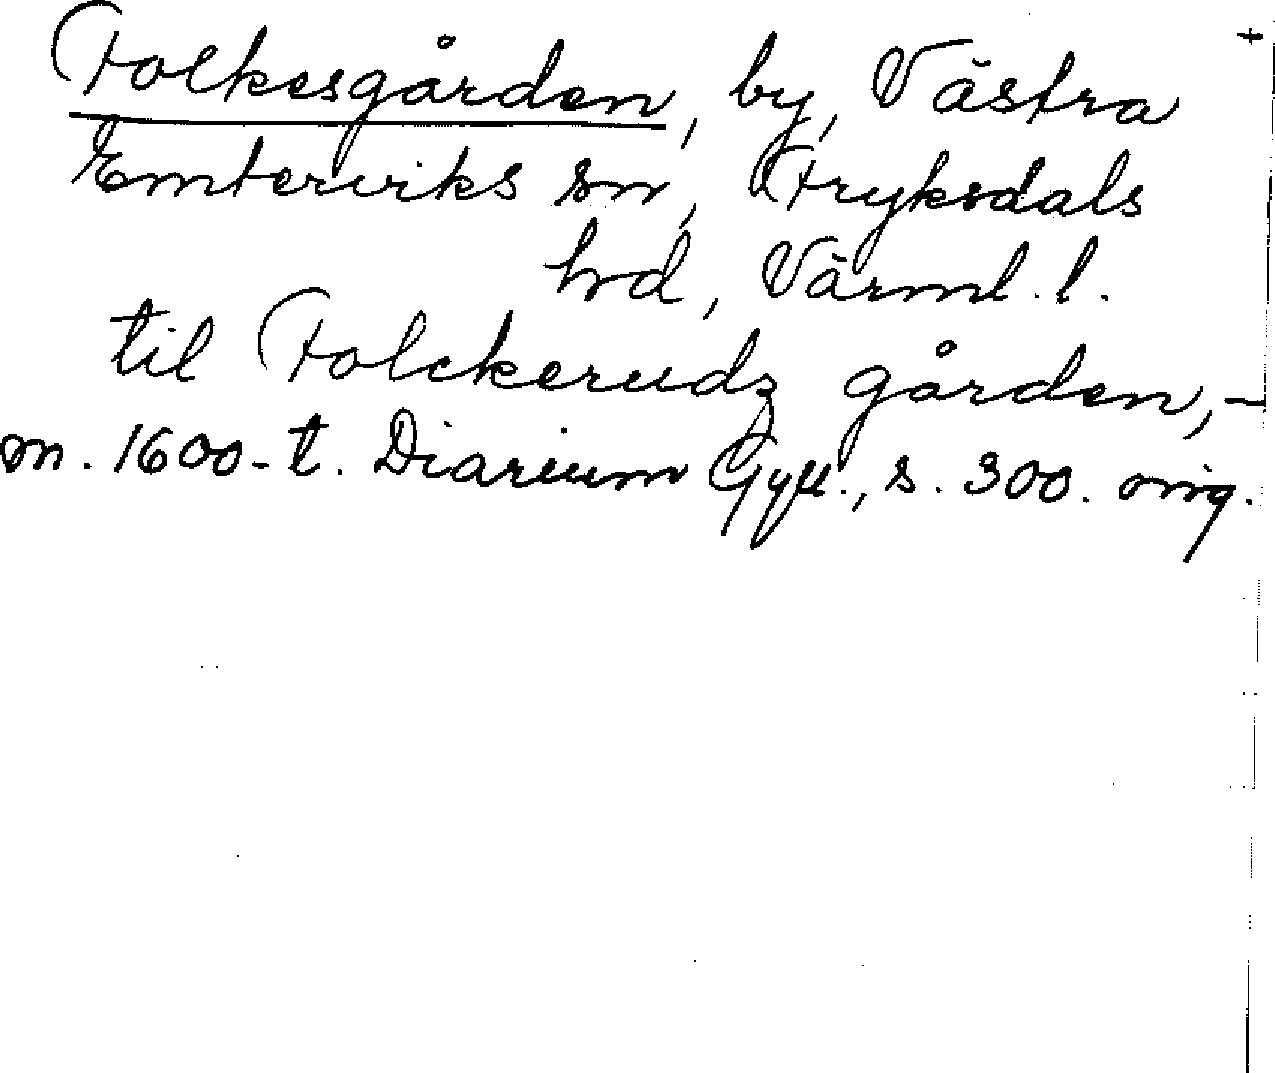 Folkesgården, by, Västra
Emterviks sn, Fryksdals
hrd, Värml. l.
til Folckerudz gården,-
m. 1600-t. Diarium Gyll., s. 300. orig.